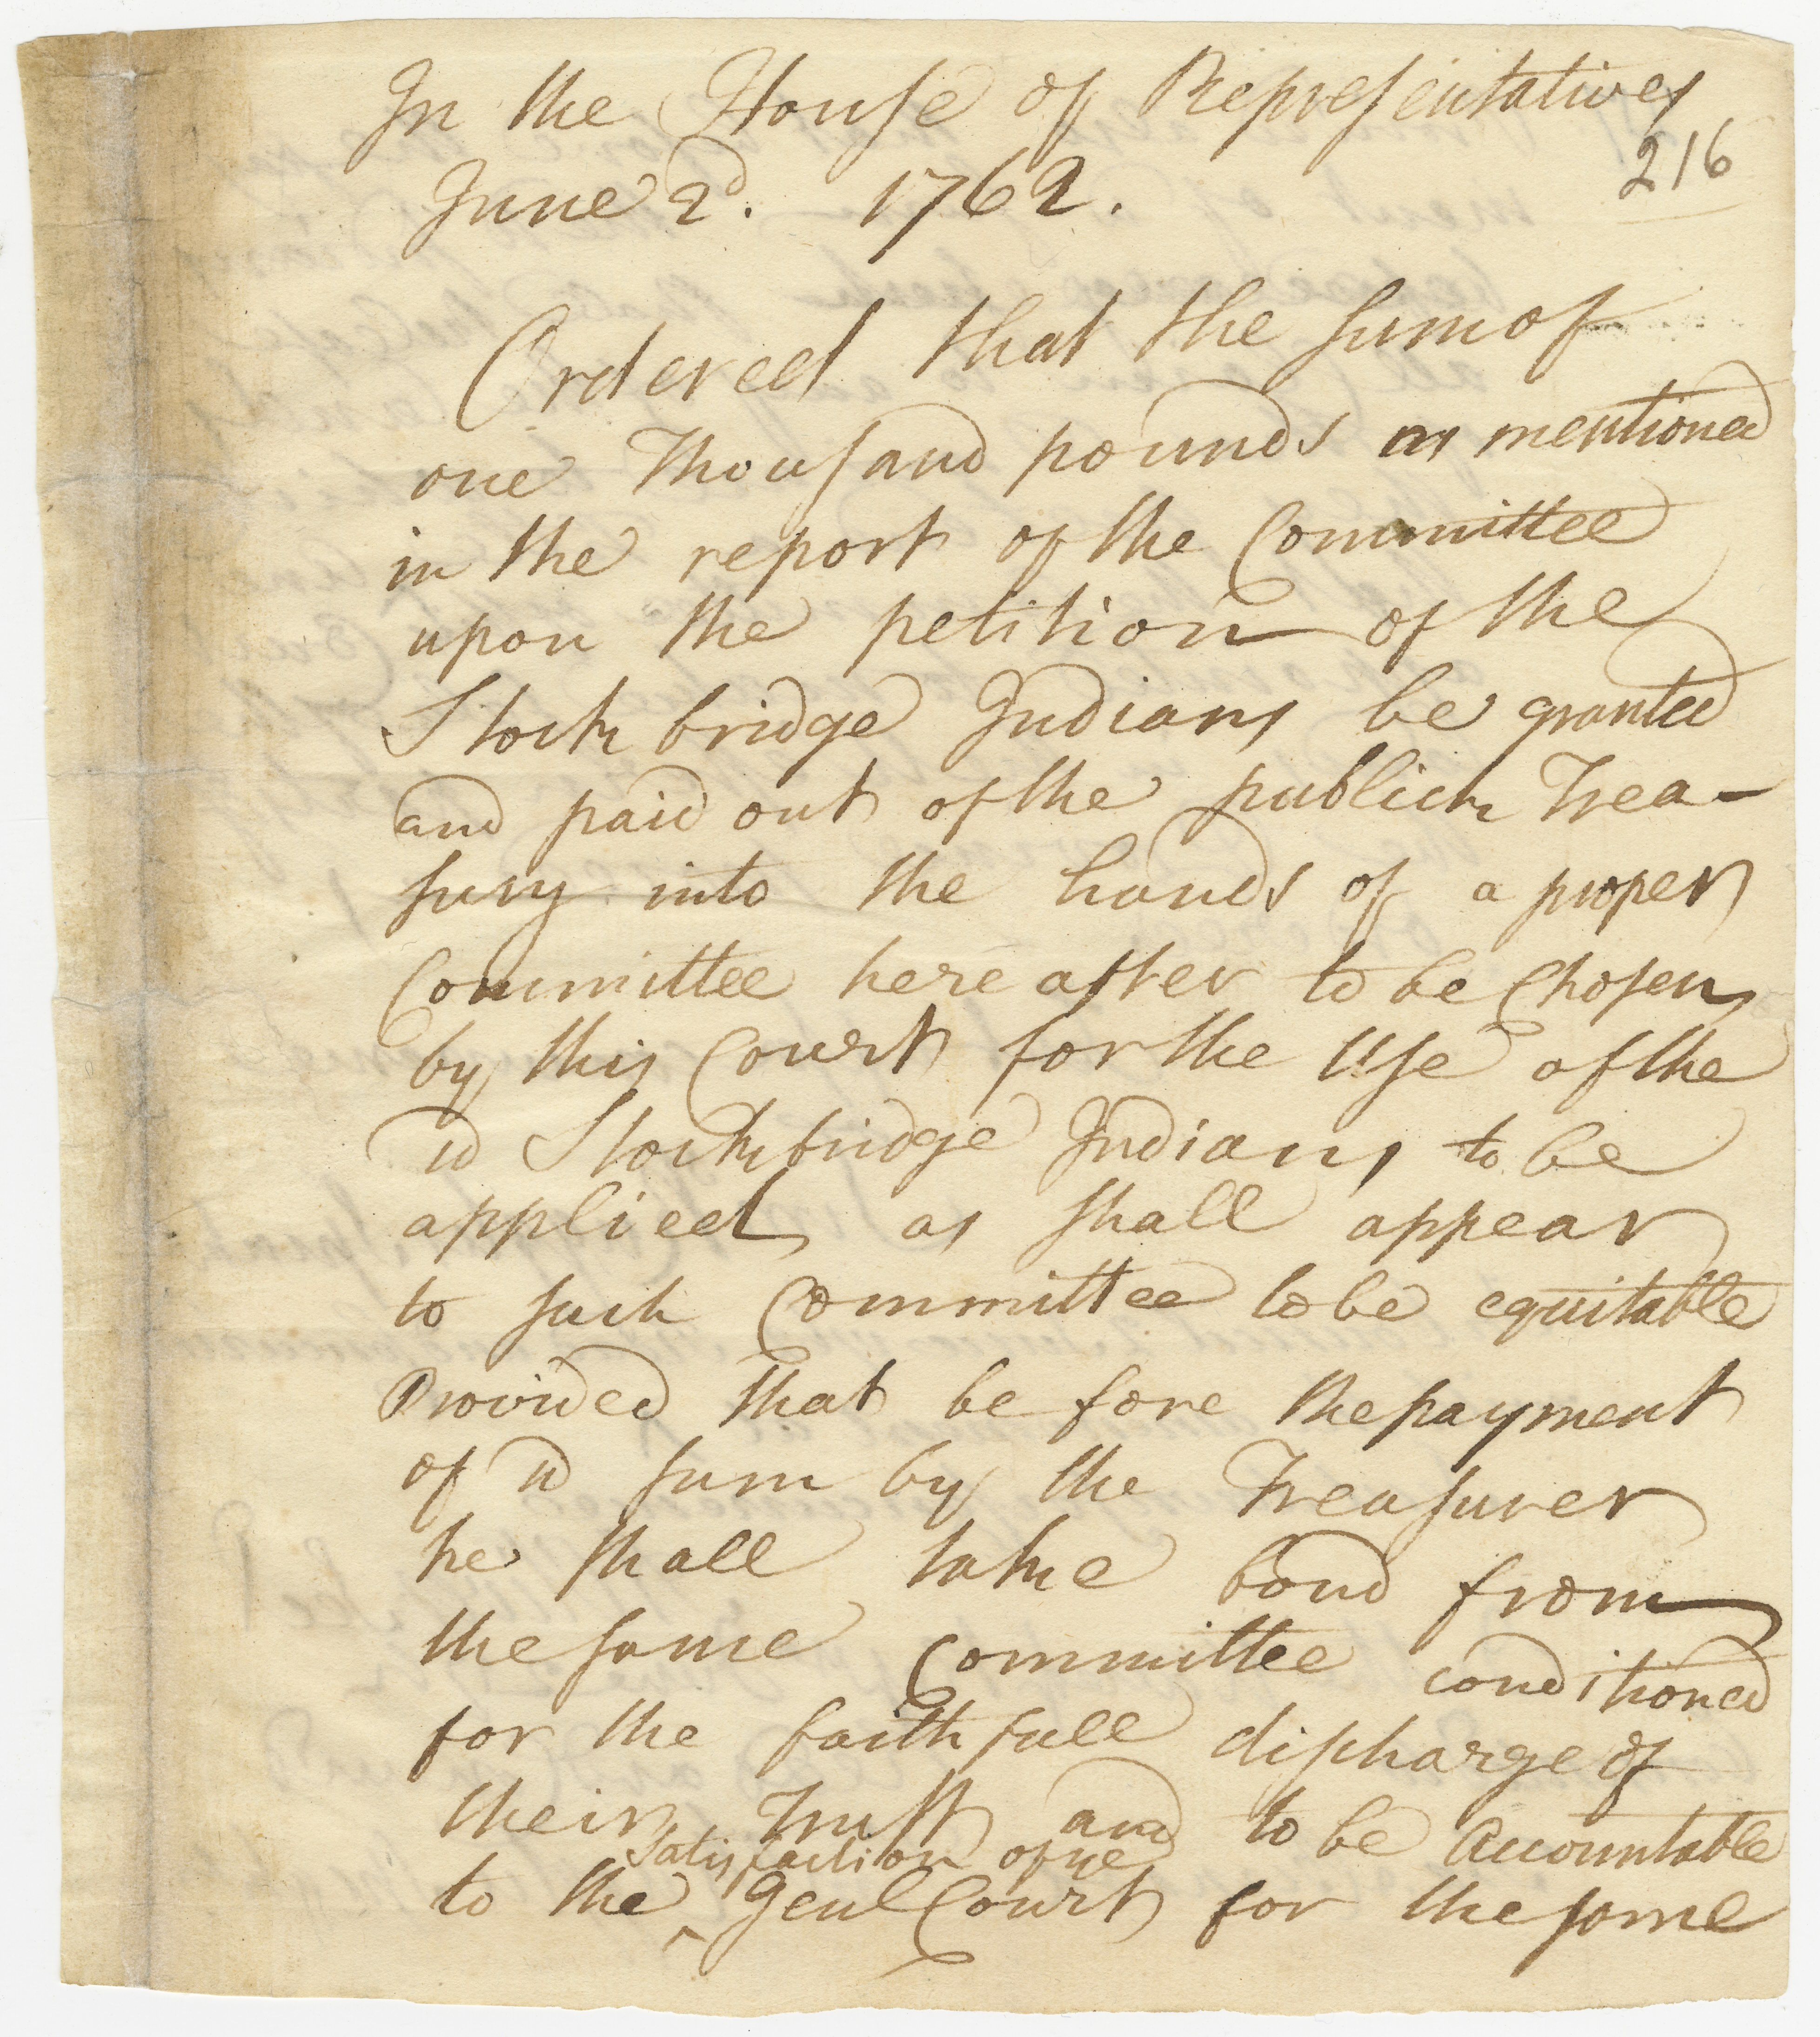 In the House of Representatives
216
June 2d. 1762.
Ordered that the sum of
one Thousand pounds as mentioned
in the report of the Committee
upon the petition of the
Stockbridge Indians be granted
and paid out of the publick Trea-
sury into the hands of a proper
Committee here after to be Chosen
by this Court for the Use of the
sd Stockbridge Indians to be
applied as shall appear
to such Committee to be equitable
Provided that be fore the payment
of sd sum by the Treasurer
he shall take bond from
the same Committee conditioned
for the faithfull discharge of
their Trust and to be Accountable
satisfaction of ye
to the ^ Genl Court for the same